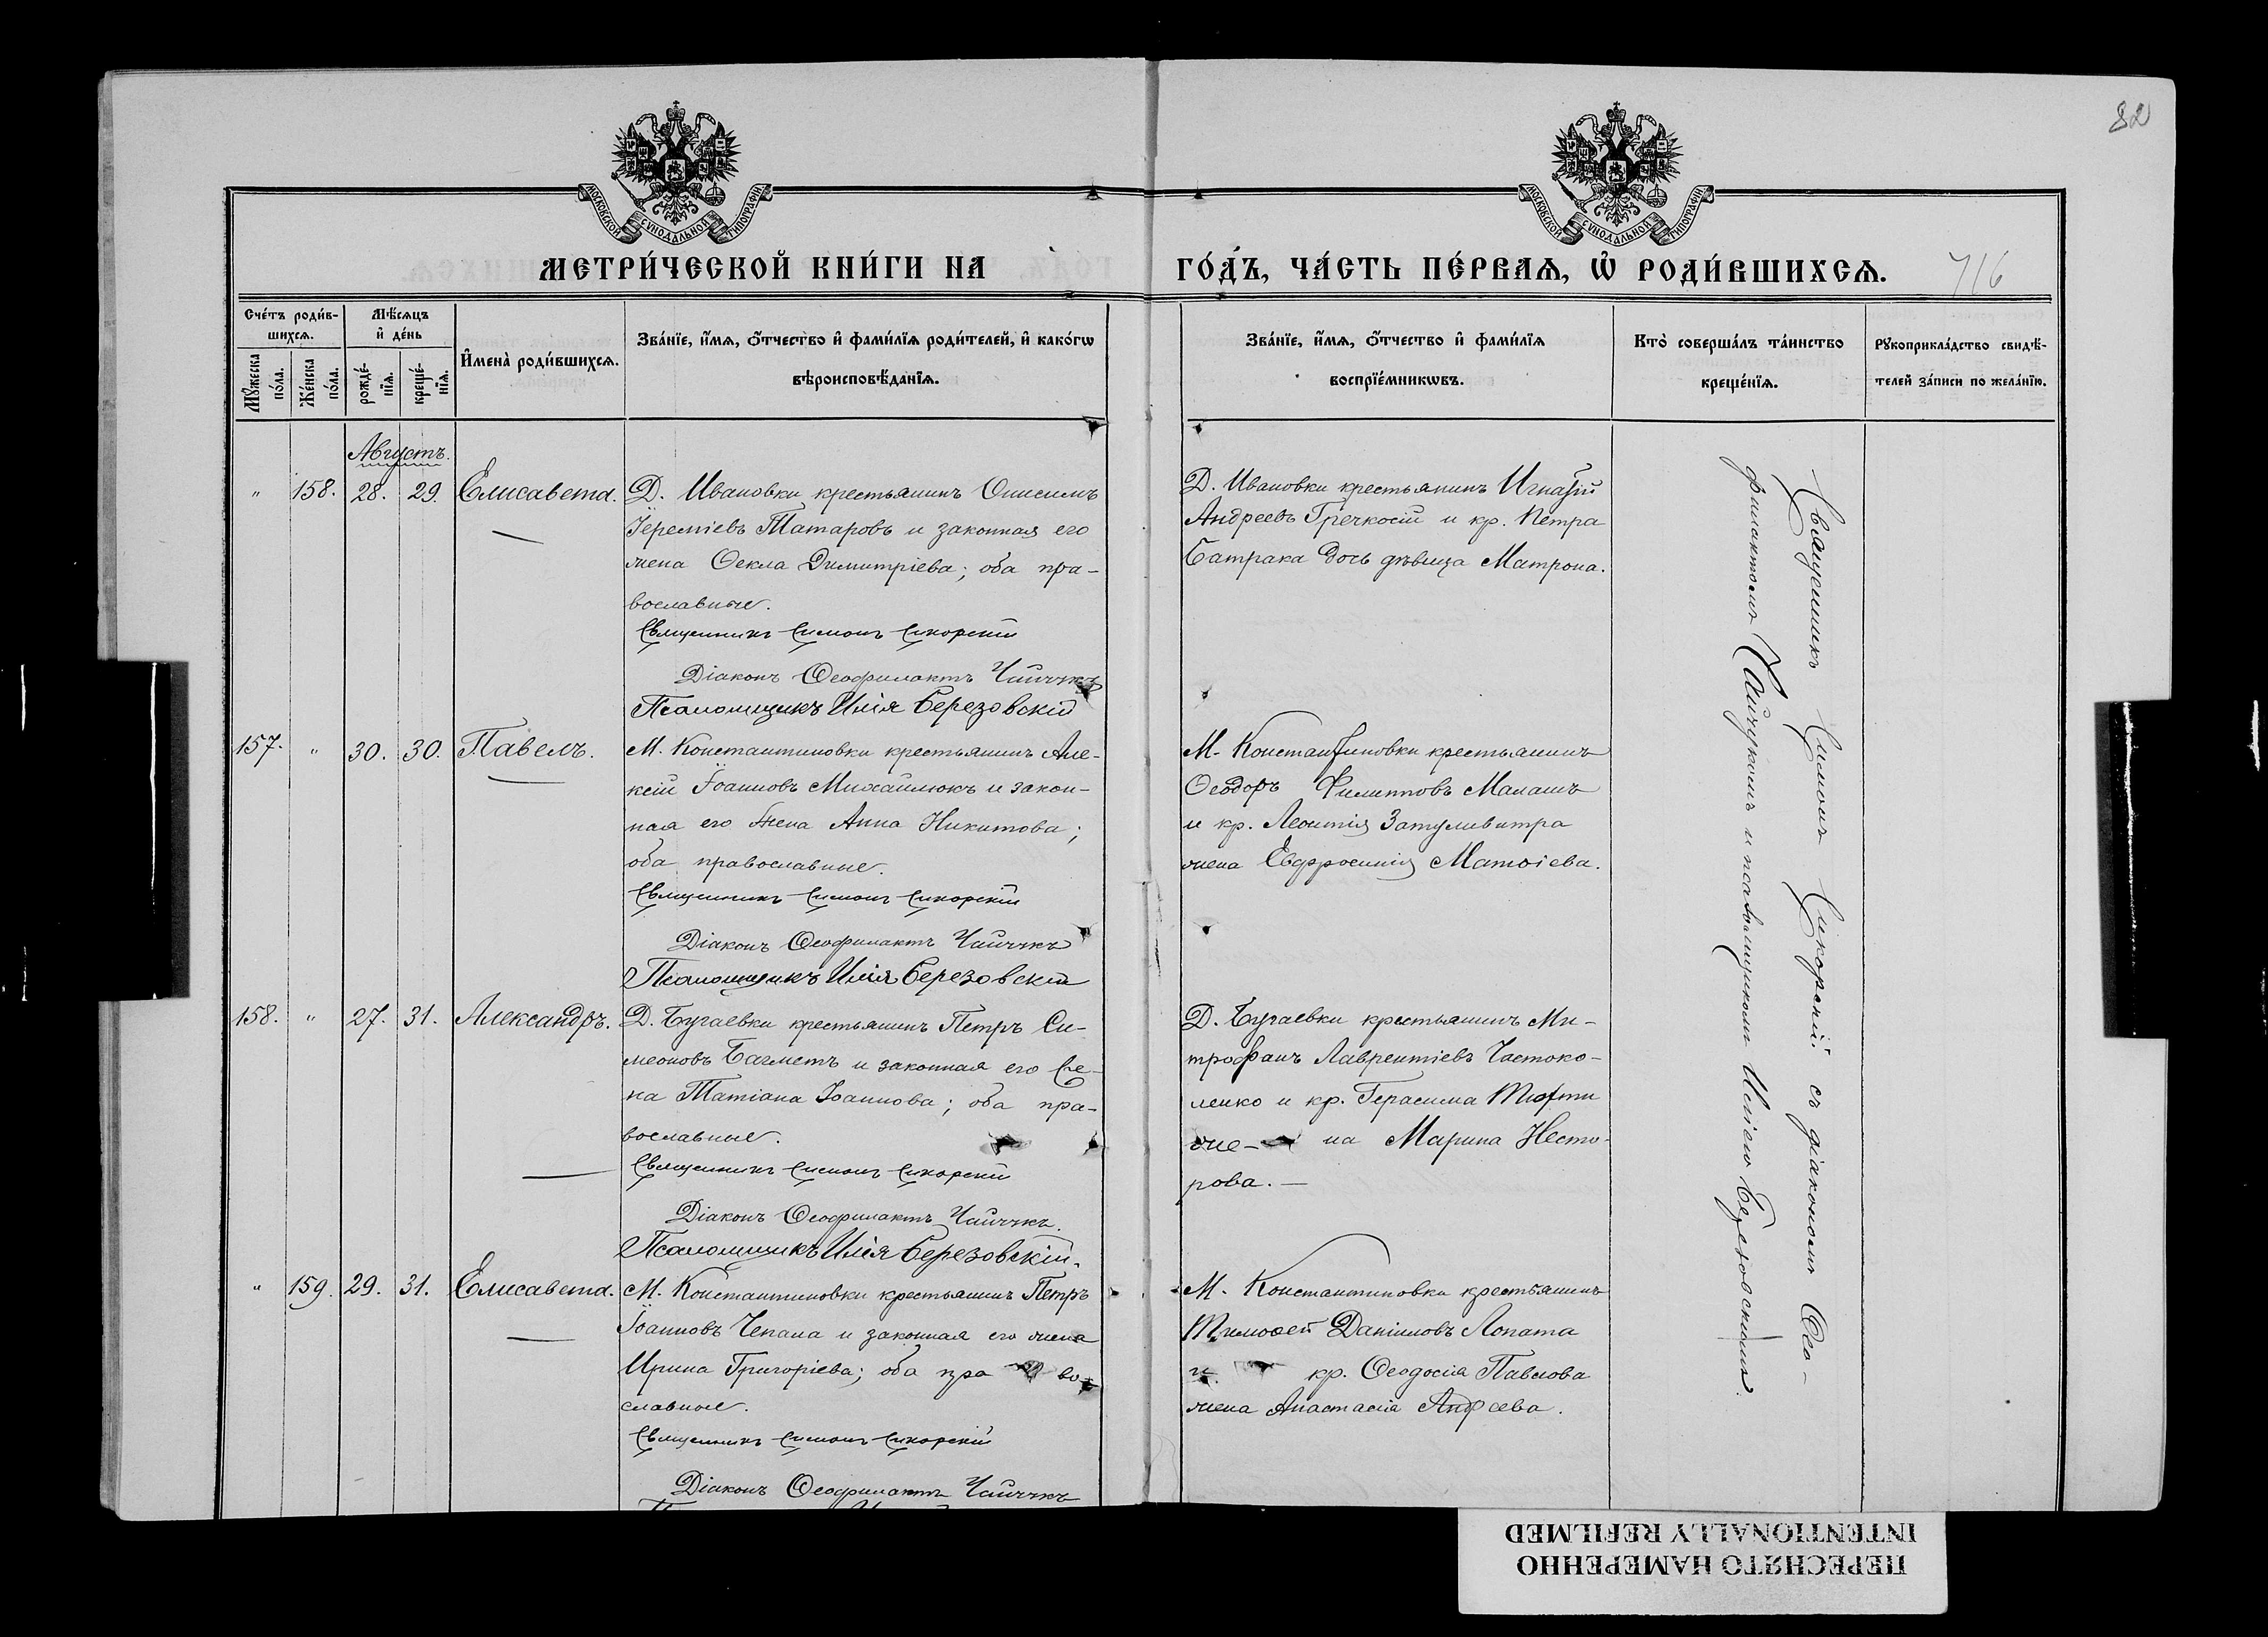 82
МОСКОВСКОЙ СУНОДАЛЬНОЙ ТИПОГРАФІИ
МОСКОВСКОЙ СУНОДАЛЬНОЙ ТИПОГРАФІИ
МЕТРИ́ЧЕСКОЙ КНИ́ГИ НА
ГО́ДЪ, ЧА́СТЬ ПЕ́РВАѦ, Ѡ РОДИ́ВШИХСѦ.
716
Сче́тъ роди́в-
шихсѧ.
Мꙋ́жеска
по́ла.
Же́нска
по́ла.
Мѣ́сѧцъ
и҆ де́нь
рожде́-
нїѧ.
креще́-
нїѧ.
И҆мена̀ роди́вшихсѧ.
Зва́нїе, и҆́мѧ, ѻ҆́тчество и҆ фами́лїѧ роди́телей, и҆ како́гѡ
вѣроисповѣ́данїѧ.
Зва́нїе, и҆́мѧ, ѻ҆́тчество и҆ фами́лїѧ
воспрїе́мникѡвъ.
Кто̀ соверша́лъ та́инство
креще́нїѧ.
Рꙋкоприкла́дство свидѣ́-
телей за́писи по жела́нїю.
Августъ.
" 158. 28. 29. Елисавета.
Д. Ивановки крестьянинъ Онисимъ
Іереміевъ Татаровъ и законная его
жена Ѳекла Димитріева; оба пра-
вославные.
Священникъ Симонъ Сикорскій
Діаконъ Ѳеофилактъ Чайчукъ
Псаломщикъ Илія Березовскій
Д. Ивановки крестьянинъ Игнатій
Андреевъ Гречкосій и кр. Петра
Батрака дочь дѣвица Матрона.
157. " 30. 30. Павелъ.
М. Константиновки крестьянинъ Але-
ксій Іоанновъ Михайлюкъ и закон-
ная его жена Анна Никитова;
оба православные.
Священникъ Симонъ Сикорскій
Діаконъ Ѳеофилактъ Чайчукъ
Псаломщикъ Илія Березовскій
М. Константиновки крестьянинъ
Ѳеодоръ Филипповъ Малашъ
и кр. Леонтія Затуливитра
жена Евфросинія Матѳіева.
158. " 27. 31. Александръ.
Д. Бугаевки крестьянинъ Петръ Си-
меоновъ Багметъ и законная его же-
на Татіана Іоаннова; оба пра-
вославные.
Священникъ Симонъ Сикорскій
Діаконъ Ѳеофилактъ Чайчукъ.
Псаломщикъ Илія Березовскій.
Д. Бугаевки крестьянинъ Ми-
трофанъ Лаврентіевъ Частоко-
ленко и кр. Герасима
же- на Марина Несто-
рова. —
" 159. 29. 31. Елисавета.
М. Константиновки крестьянинъ Петръ
Іоанновъ Чепала и законная его жена
Ирина Григоріева; оба пра во-
славные.
Священникъ Симонъ Сикорскій
Діаконъ Ѳеофилактъ Чайчукъ
М. Константиновки крестьянинъ
Тимоѳей Даніиловъ Лопата
и кр. Ѳеодосія Павлова
жена Анастасія Андреева.
Священникъ Симонъ Сикорскій съ діакономъ Ѳео-
филактомъ Чайчукомъ и псаломщикомъ Иліею Березовскимъ.
ПЕРЕСНЯТО НАМЕРЕННО
INTENTIONALLY REFILMED